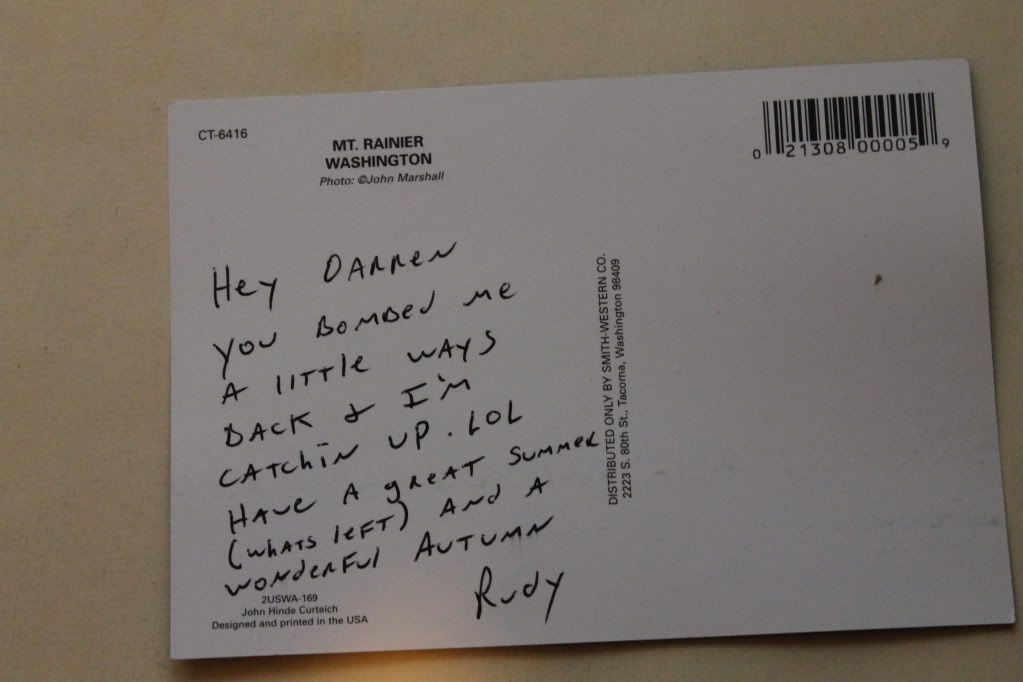 CT-6416
MT. RAINIER
WASHINGTON
Photo: ©John Marshall
0 21308 00005 9
Hey DARREN
you BOMBED ME
A liTTle WAYS
BACK & I'M
CATChiN UP. LOL
HAVE A gREAT SUMMER
(WhATS lEFT) ANd A
WONdERFUl AUTUMN
Rudy
DISTRIBUTED ONLY BY SMITH-WESTERN CO.
2223 S. 80th St., Tacoma, Washington 98409
2USWA-169
John Hinde Curteich
Designed and printed in the USA